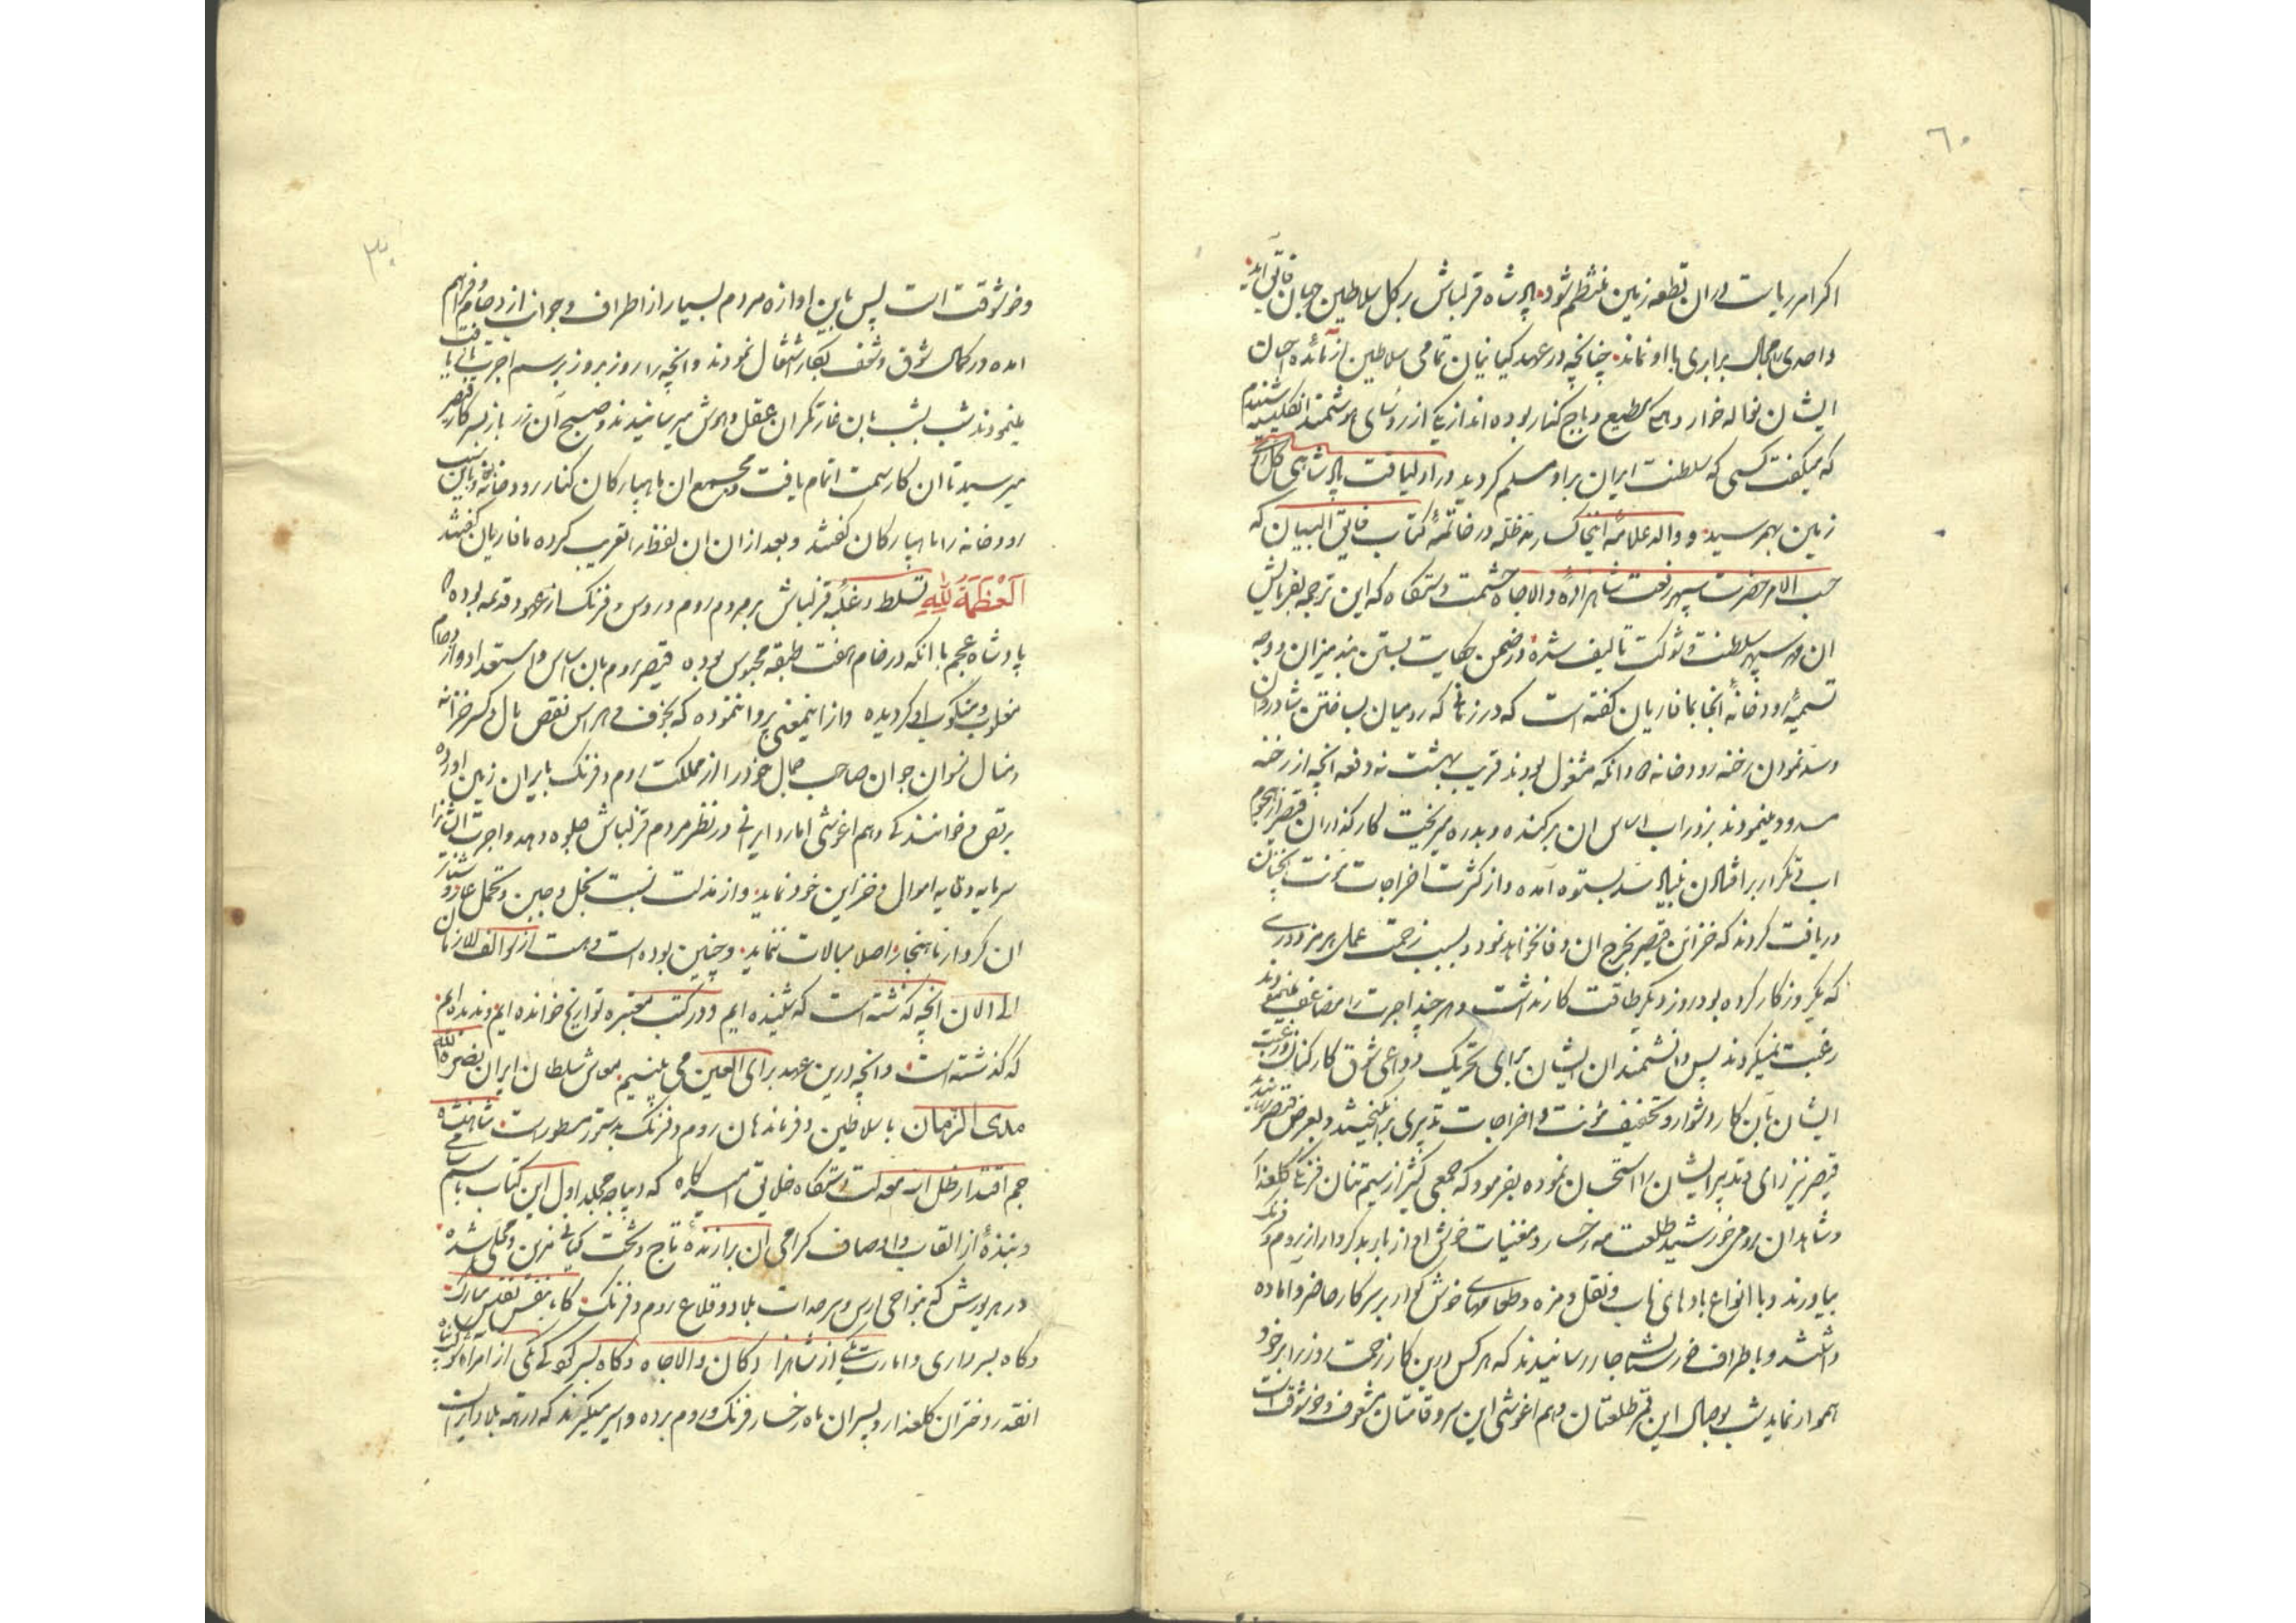 ٦٠
اکر امر ریاست در ان قطعه زمین منتظم شود پادشاه قزلباش بر کل سلاطین جهان فایق آید
واحدی را مجال برابری با او نماند چنانچه در عهد کیانیان تمامی سلاطین از مائده احسان
ایشان نواله خوار و همه مطیع و باج کذار بوده اند از یکی از روسای هوشمند انکلیسیه شنیدم
که میکفت کسی که سلطنت ایران بر او مسلم کردید در او لیاقت پادشاهی کل
زمین بهمرسید و والد علامه اینخاکسار مد ظله در خاتمه کتاب فایق البیان که
حسب الامر حضرت سپهر رفعت شاهزاده والاجاه حشمت دستکاه که این ترجمه بفرمایش
ان مهر سپهر سلطنت و شوکت تالیف شده در ضمن حکایت بستن بند میزان و وجه
تسمیه رودخانه انجا بمافاریان کفته است که در زمانی که رومیان بساختن شادروان
و سد نمودن رخنه رودخانه و انکه مشغول بودند قریب بهشت نه دفعه انچه از رخنه
مسدود مینمودند بزور اب اساس ان برکنده و بدره میریخت کارکذاران قیصر از هجوم
اب و تکرار بر افتادن بنیاد سد بستوه آمده و از کثرت اخراجات مؤنت
دریافت کردند که خزاین قیصر بخرج ان وفا نخواهد نمود و بسبب زحمت عمل هر مزدوری
که یکروز کار کرده بود روز دیکر طاقت کار نداشت و هر چند اجرت را مضاعف مینمودند
رغبت نمیکردند پس دانشمندان ایشان برای تحریک دواعی شوق کارکنان و رغبت
ایشان بآن کار دشوار و تخفیف مؤنت و اخراجات تدبیری برانکیختند و بعرض قیصر رسانیدند
قیصر نیز رای و تدبیر ایشان را استحسان نموده بفرمود که جمعی کثیر از سیم تنان فرنکی کلعذار
و شاهدان رومی خورشید طلعت مه رخسار و مغنیات خوش اواز باربد کردار از روم و فرنک
بیاورند و با انواع بادهای ناب و نقل و مزه و طعامهای خوش کوار بر سر کار حاضر و اماده
داشتند و باطراف جار رسانیدند که هر کس درین کار زحمت روز را بر خود
هموار نماید شب بوصال این قمر طلعتان و هم اغوشی این سرو قامتان مشعوف و خوشوقت است
٣٠
و خوشوقت است پس باین اوازه مردم بسیار از اطراف و جوانب ازدحام و فراهم
امده در کمال شوق و شعف بکار اشتغال نمودند و انچه را روز بروز برسم اجرت دریافت
مینمودند شب بشب بان غارتکران عقل و هوش میرسانیدند و صبح آن زر باز بسرکار قیصر
میرسید تا ان کار سمت اتمام یافت و مجمع ان ماهپارکان کنار رودخانه بود باین سبب
رودخانه را ماهپارکان کفتند و بعد از ان ان لفظ را تعریب کرده مافاریان کفتند
اَلْعَظَمَةُ لِلّٰهِ تسلط و غلبه قزلباش بر مردم روم و روس و فرنک از عهود قدیمه بوده
پادشاه عجم با انکه در خام هفت طبقه محبوس بوده قیصر روم بان ساس و استعداد و ازدحام
مغلوب و منکوب او کردیده و از اینمعنی پروا ننموده که بخوف و هراس نقص مال و کسر خزانه
و مال نسوان جوان صاحب جمال خود را از مملکت روم و فرنک بایران زمین اورده
برقص و خوانندکی و هم اغوشی امارد ایرانی در نظر مردم قزلباش جلوه دهد و اجرت انرا
سرمایه وقایه اموال و خزاین خود نماید و از مذلت نسبت بخل و جبن و تحمل عار و
ان کردار ناهنجار اصلا مبالات ننماید و چنین بوده است و هست از سوالف الازمان
الی الان انچه کذشته است که شنیده ایم و در کتب معتبره تواریخ خوانده ایم و ندیده ایم
که کذشته است و انچه درین عهد برای العین می بینیم معاش سلطان ایران نصره الله
مدی الزمان با سلاطین و فرماندهان روم و فرنک بدستور مسطور است شاهنشاه
جم اقتدار ظل اله معدلت دستکاه خلایق امیدکاه که دیباجه مجلد اول این کتاب باسم سامی
و نبذه از القاب و اوصاف کرامی ان برازنده تاج و تخت کیانی مزین و محلی شده
در هر یورش که بنواحی ارس و سرحدات بلاد و قلاع روم و فرنک کاه بنفس نفیس مبارک
و کاه بسرداری و امارت یکی از شاهزادکان والاجاه و کاه بسرکردکی یکی از امرا
انقدر دختران کلعذار و پسران ماه رخسار فرنک و روم برده و اسیر میکیرند که در همه بلاد ایران